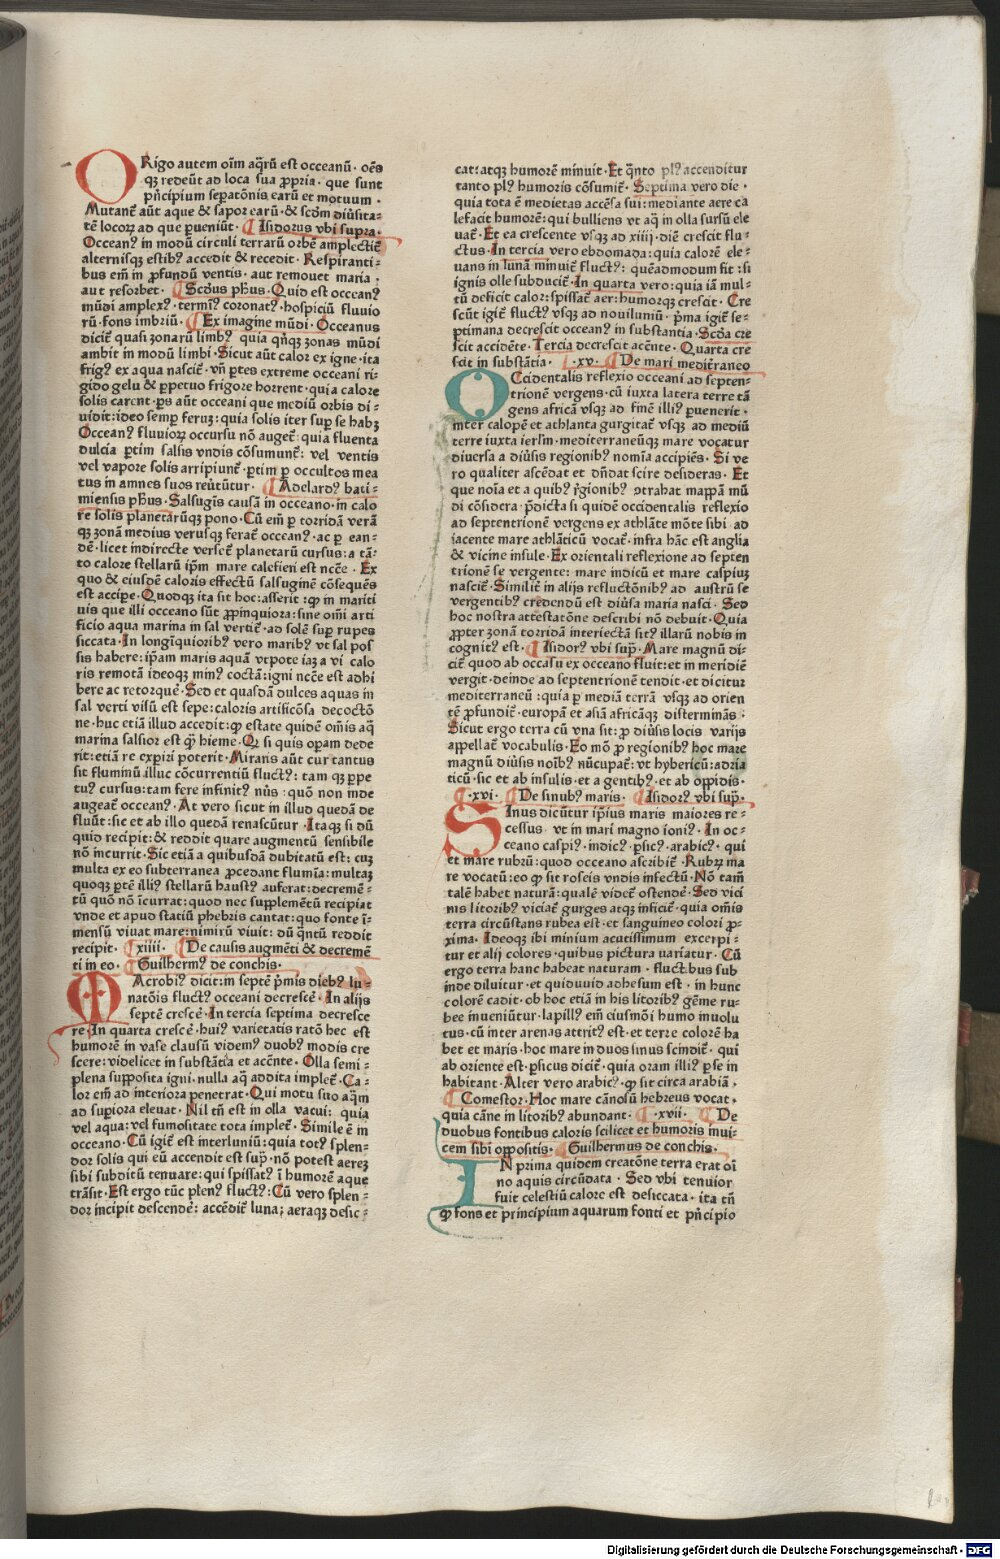 ORigo autem oīm aq̄rū est occeanū · oēs
qꝫ redeūt ad loca sua ꝓpria · que sunt
pn̄cipium seꝑatōnis earū et motuum ·
Mutanť aūt aque & sapor earū · & scdm diūsita⸗
tē locoꝝ ad que ꝑueniūt · ¶ Isidorus vbi supra ·
Occeanꝰ in modū circuli terrarū orbē amplectiť
alternisqꝫ estibꝰ accedit & recedit · Respiranti⸗
bus em̄ in ꝓfundū ventis · aut remouet maria ·
aut resorbet · ¶ Scdus pħus · Quid est occeanꝰ
mūdi amplexꝰ · termīꝰ coronatꝰ · hospiciū fluuio
rū · fons imbriū · ¶ Ex imagine mūdi · Occeanus
diciť quasi zonarū limbꝰ quia qn̄qꝫ zonas mūdi
ambit in modū limbi · Sicut aūt calor ex igne · ita
frigꝰ ex aqua nasciť · vn̄ ꝑtes extreme occeani ri⸗
gido gelu & ꝑpetuo frigore horrent · quia calore
solis carent · ꝑs aūt occeani que mediū orbis di⸗
uidit: ideo semꝑ feruꝫ: quia solis iter suꝑ se habꝫ
Occeanꝰ fluuioꝝ occursu nō augeť: quia fluenta
dulcia ꝑtim salsis vndis cōsumunť: vel ventis
vel vapore solis arripiunť · ꝑtim ꝑ occultos mea
tus in amnes suos reūtūtur · ¶ Adelardꝰ bati⸗
miensis pħus · Salsugīs causā in occeano · in calo
re solis planetarūqꝫ pono · Cū em̄ ꝑ torridā verā
qꝫ zonā medius verusqꝫ ferať occeanꝰ · ac ꝑ ean⸗
dē · licet indirecte verseť planetarū cursus: a tā⸗
to calore stellarū ip̄m mare calefieri est nc̄ce · Ex
quo & eiusdē caloris effectū salsuginē cōsequēs
est accipe · Quodqꝫ ita sit hoc: asserit: ꝙ in mariti
uis que illi occeano sūt ꝓpinquiora: sine om̄i arti
ficio aqua marina in sal vertiť · ad solē suꝑ rupes
siccata · In longīquioribꝰ vero maribꝰ vt sal pos
sis habere: ip̄am maris aquā vtpote iaꝫ a vi calo
ris remotā ideoqꝫ minꝰ coctā: igni nc̄ce est adhi
bere ac retorquē · Sed et quasdā dulces aquas in
sal verti visū est sepe: caloris artificōsa decoctō
ne · huc etiā illud accedit: ꝙ estate quidē om̄is aq̄
marina salsior est qꝫ hieme · Qꝛ si quis opam dede
rit: etiā re expiri poterit · Mirans aūt cur tantus
sit fluminū illuc cōcurrentiū fluctꝰ: tam qꝫ ꝑpe
tuꝰ cursus: tam fere infinitꝰ nūs: quō non inde
augeať occeanꝰ · At vero sicut in illud quedā de
fluūt: sic et ab illo quedā renascūtur · Itaqꝫ si dū
quid recipit: & reddit quare augmentū sensibile
nō incurrit · Sic etiā a quibusdā dubitatū est: cuꝫ
multa ex eo subterranea ꝓcedant flumīa: multaꝫ
quoqꝫ ꝑtē illiꝰ stellarū haustꝰ auferat: decremē⸗
tū quō nō īcurrat: quod nec supplemētū recipiat
vnde et apud statiū phebris cantat: quo fonte ī⸗
mensū viuat mare: nimirū viuit: dū qn̄tū reddit
recipit · ¶ xiiii · ¶ De causis augmēti & decremē
ti in eo · ¶ Guilhermꝰ de conchis ·
MAcrobiꝰ dicit: in septē pͥmis diebꝰ lu⸗
natōis fluctꝰ occeani decresce · In alijs
septē cresce · In tercia septima decresce
re · In quarta cresce · huiꝰ varietatis ratō hec est
humorē in vase clausū videmꝰ duobꝰ modis cre
scere: videlicet in substātia et acc̄nte · Olla semi⸗
plena supposita igni · nulla aq̄ addita impleť · Ca⸗
lor em̄ ad interiora penetrat · Qui motu suo aq̄m
ad suꝑiora eleuat · Nil tn̄ est in olla vacui: quia
vel aqua: vel fumositate tota impleť · Simile ē in
occeano · Cū igiť est interluniū: quia totꝰ splen⸗
dor solis qui eū accendit est suꝑ · nō potest aereꝫ
sibi subditū tenuare: qui spissatꝰ ī humorē aque
trāsit · Est ergo tūc plenꝰ fluctꝰ: Cū vero splen⸗
dor incipit descendē: accediť lunaꝫ aeraqꝫ desic⸗
cat: atqꝫ humorē minuit · Et qn̄to plꝰ accenditur
tanto plꝰ humoris cōsumiť · Septima vero die ·
quia tota ē medietas accēsa sui: mediante aere ca
lefacit humorē: qui bulliens vt aq̄ in olla sursū ele
uať · Et ea crescente vsqꝫ ad xiiii · diē crescit flu⸗
ctus · In tercia vero ebdomada: quia calorē ele⸗
uans in lunā minuiť fluctꝰ: quēadmodum fit: si
ignis olle subduciť · In quarta vero: quia iā mul⸗
tū deficit calor: spissať aer: humorqꝫ crescit · Cre
scūt igiť fluctꝰ vsqꝫ ad nouiluniū · pͥma igiť se⸗
ptimana decrescit occeanꝰ in substantia · Scda cre
scit accidēte · Tercia decrescit acc̄nte · Quarta cre
scit in substātia · ¶ · xv · ¶ De mari mediťraneo
OCcidentalis reflexio occeani ad septen⸗
trionē vergens · cū iuxta latera terre tā
gens africā vsqꝫ ad finē illiꝰ ꝑuenerit ·
inter calopē et athlanta gurgitať vsqꝫ ad mediū
terre iuxta ierlm̄ · mediterraneūqꝫ mare vocatur
diuersa a diūsis regionibꝰ nomīa accipiēs · Si ve
ro qualiter ascēdat et dn̄dat scire desideras · Et
que noīa et a quibꝰ rͥgionibꝰ ꝯtrahat mappā mū
di cōsidera · pͥdicta si quidē occidentalis reflexio
ad septentrionē vergens ex athlāte mōte sibi · ad
iacente mare athlāticū vocať · infra hāc est anglia
& vicine insule · Ex orientali reflexione ad septen
trionē se vergente: mare indicū et mare caspiuꝫ
nasciť · Similiť in alijs refluctōnibꝰ ad austrū se
vergentibꝰ credendū est diūsa maria nasci · Sed
hoc nostra attestatōne describi nō debuit · Quia
ꝓpter zonā torridā interiectā sitꝰ illarū nobis in
cognitꝰ est · ¶ Isidorꝰ vbi supͣ · Mare magnū di⸗
ciť quod ab occasu ex occeano fluit: et in meridiē
vergit · deinde ad septentrionē tendit · et dicitur
mediterraneū: quia ꝑ mediā terrā vsqꝫ ad orien
tē ꝓfundiť · europā et asiā africāqꝫ disterminās:
Sicut ergo terra cū vna sit: ꝓ diūsis locis varijs
appellať vocabulis · Eo mō ꝓ regionibꝰ hoc mare
magnū diūsis noībꝰ nūcupať: vt hybericū: adria
ticū · sic et ab insulis · et a gentibꝰ · et ab oppidis ·
¶ · xvi · ¶ De sinubꝰ maris · ¶ Isidorꝰ vbi supͣ ·
SInus dicūtur ip̄ius maris maiores re⸗
cessus · vt in mari magno ioniꝰ · In oc⸗
ceano caspiꝰ · indicꝰ · ꝑsicꝰ · arabicꝰ · qui
et mare rubrū: quod occeano ascribiť · Rubꝝ ma
re vocatū: eo ꝙ sit roseis vndis infectū · Nō tam̄
talē habet naturā: qualē videť ostendē · Sed vici
nis litoribꝰ viciať gurges atqꝫ inficiť · quia om̄is
terra circūstans rubea est · et sanguineo colori ꝓ⸗
xima · Ideoqꝫ ibi minium acutissimum excerpi⸗
tur et alij colores · quibus pictura uariatur · Cū
ergo terra hanc habeat naturam · fluctibus sub
inde diluitur · et quiduuid adhesum est · in hunc
colorē cadit · ob hoc etiā in his litoribꝰ gēme ru⸗
bee inueniūtur · lapillꝰ em̄ eiusmōi humo inuolu
tus · cū inter arenas attritꝰ est · et terre colorē ha
bet et maris · hoc mare in duos sinus scindiť · qui
ab oriente est · ꝑsicus diciť · quia oram illiꝰ ꝑse in
habitant · Alter vero arabicꝰ · ꝙ sit circa arabiā ·
¶ Comestor · Hoc mare cānosū hebreus vocat ·
quia cāne in litoribꝰ abundant · ¶ · xvii · ¶ De
duobus fontibus caloris scilicet et humoris inui⸗
cem sibi oppositis · ¶ Guilhermus de conchis ·
IN prima quidem creatōne terra erat oī
no aquis circūdata · Sed vbi tenuior
fuit celestiū calore est desiccata · ita tn̄
ꝙ fons et principium aquarum fonti et pn̄cipio
Digitalisierung gefördert durch die Deutsche Forschungsgemeinschaft · DFG